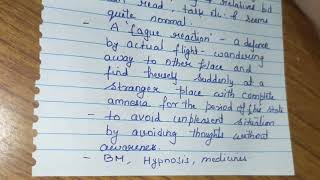 can read - talk etc. & seems
quite normal.
- A 'fague reaction' - a defence
by actual flight - wandering
away to other place and
find theirself suddenly at a
stranger place with complete
amnesia for the period of the state
- to avoid unplesent situation
by avoiding thoughts without
awareness.
- BM, Hypnosis, medicines